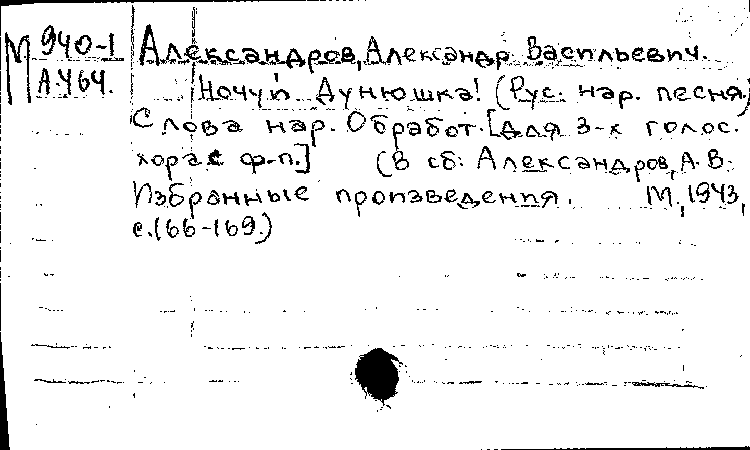 М 940-1
А.464.
Александров, Александр Васильевич.
Ночуй Дунюшка! (Рус. нар. песня)
Слова нар. Обработ. [для 3-х голос.
хора с ф-п.] (В сб: Александров, А. В.
Избранные произведения. М., 1943,
с. 166-169.)